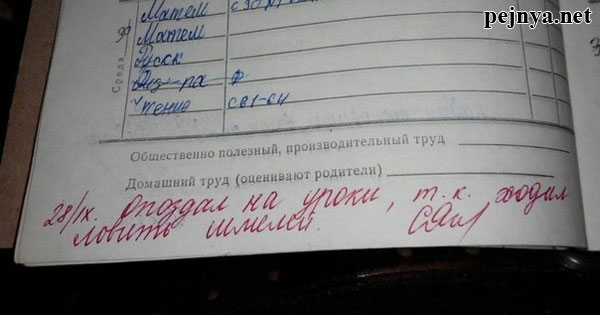 pejnya.net
Матем
30
Матем
Русск
Среда
Физ-ра ф
Чтение с61-64
Общественно полезный, производительный труд
Домашний труд (оценивают родители)
28/IX. Опоздал на уроки, т.к. ходил
ловить шмелей.